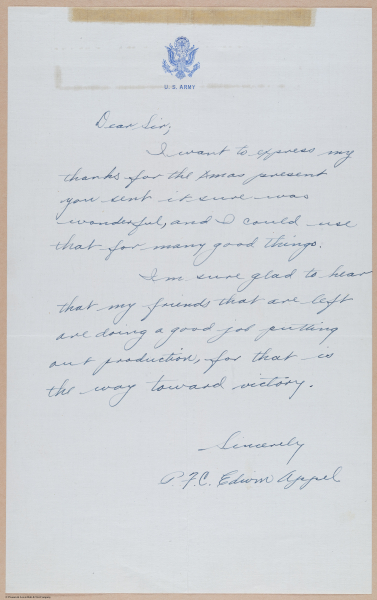 U. S. ARMY
Dear Sir;
I want to express my
thanks for the Xmas present
you sent it sure was
wonderful, and I could use
that for many good things.
I'm sure glad to hear
that my friends that are left
are doing a good job putting
out production, for that is
the way toward victory.
Sincerely
P.F.C. Edwin Appel